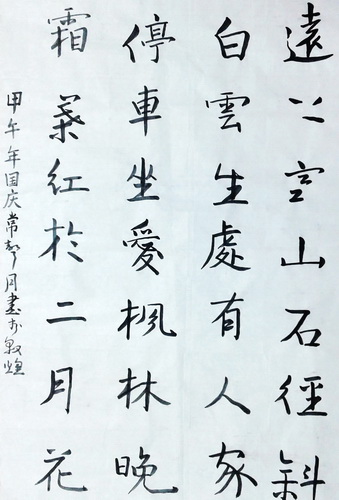 遠上寒山石徑斜
白雲生處有人家
停車坐愛楓林晚
霜葉紅於二月花
甲午年国庆常月書於敦煌